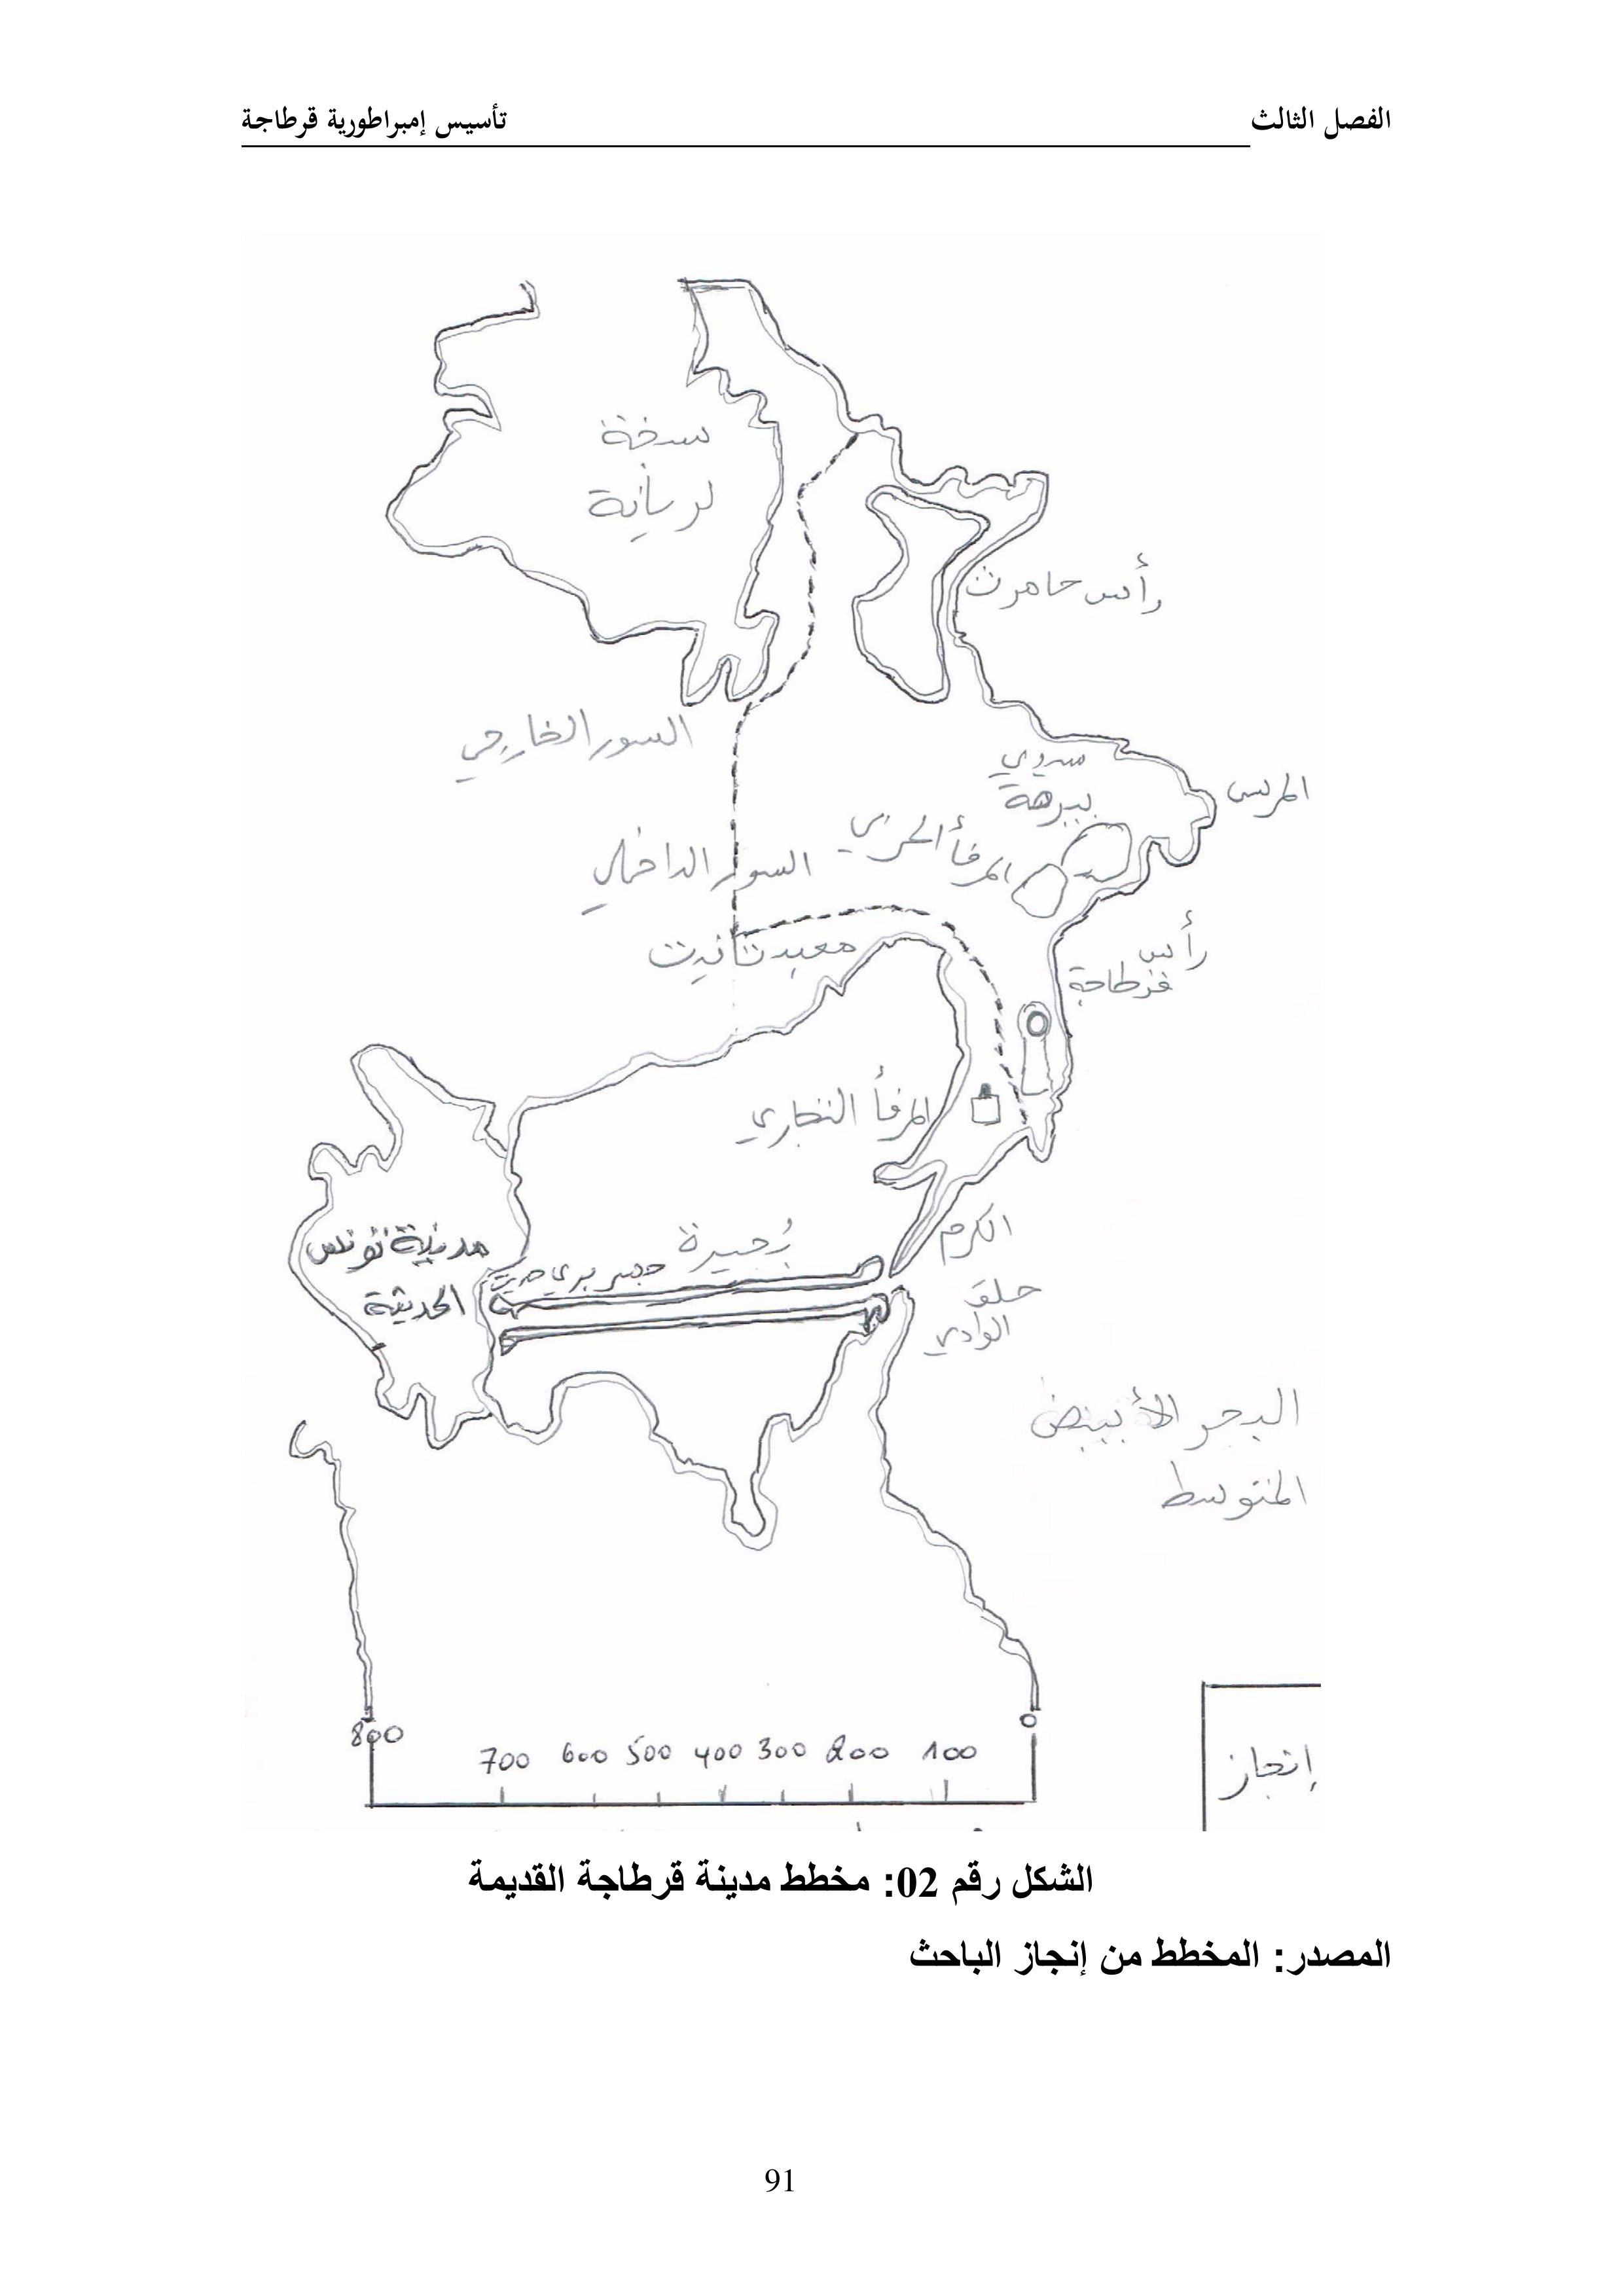 الفصل الثالث
تأسيس إمبراطورية قرطاجة
رأس حامرت
السور الخارجي
المرسى
المرفأ الحربي
السور الداخلي
معبد تانيت
رأس
قرطاجة
المرفأ التجاري
الكرم
بُحيرة
مدينة تونس
الحديثة
حلق
الوادي
البحر الأبيض
المتوسط
800 700 600 500 400 300 200 100 0
إنجاز
الشكل رقم 02: مخطط مدينة قرطاجة القديمة
المصدر: المخطط من إنجاز الباحث
91